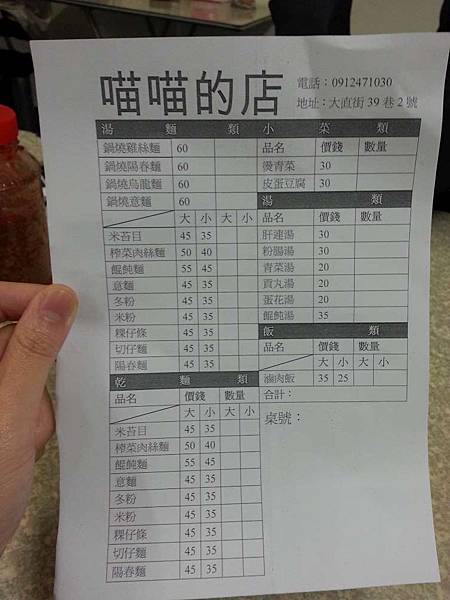 喵喵的店
電話：0912471030
地址：大直街39巷2號
湯 麵 類
鍋燒雞絲麵 60
鍋燒陽春麵 60
鍋燒烏龍麵 60
鍋燒意麵 60
大 小 大 小
米苔目 45 35
榨菜肉絲麵 50 40
餛飩麵 55 45
意麵 45 35
冬粉 45 35
米粉 45 35
粿仔條 45 35
切仔麵 45 35
陽春麵 45 35
乾 麵 類
品名 價錢 數量
大 小 大 小
米苔目 45 35
榨菜肉絲麵 50 40
餛飩麵 55 45
意麵 45 35
冬粉 45 35
米粉 45 35
粿仔條 45 35
切仔麵 45 35
陽春麵 45 35
小 菜 類
品名 價錢 數量
燙青菜 30
皮蛋豆腐 30
湯 類
品名 價錢 數量
肝連湯 30
粉腸湯 30
青菜湯 20
貢丸湯 20
蛋花湯 20
餛飩湯 35
飯 類
品名 價錢 數量
大 小 大 小
滷肉飯 35 25
合計：
桌號：